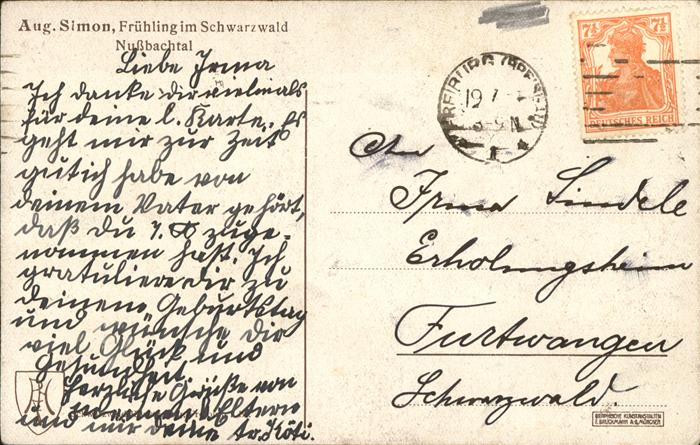 Aug. Simon, Frühling im Schwarzwald
Nußbachtal
Liebe Irma
Ich danke dir vielmals
für deine l. Karte. Es
geht mir zur Zeit
gut ich habe von
deinem Vater gehört,
daß du 7. zuge-
nommen hast. Ich
gratuliere dir zu
deinem Geburtstag
und wünsche dir
viel Glück und
Gesundheit.
Herzliche Grüße von
deinen Eltern
und mir deine tr.
FREIBURG (BREISGAU)
19.7.
1
7½ 7½
DEUTSCHES REICH
An
Irma Lindele
Erholungsheim
Furtwangen
Schwarzwald.
GRAPHISCHE KUNSTANSTALTEN
F. BRUCKMANN A.G. MÜNCHEN